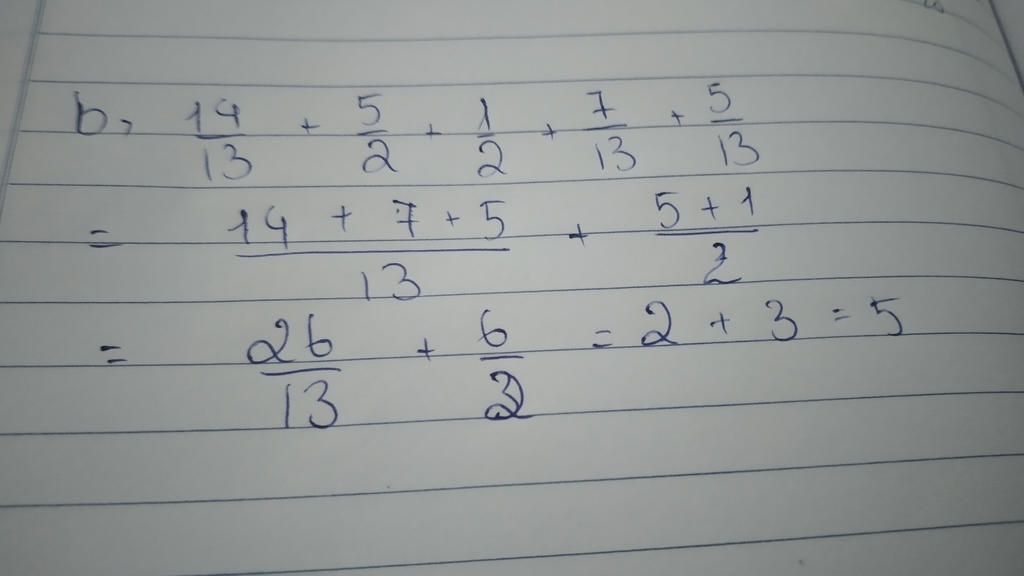 b, 14/13 + 5/2 + 1/2 + 7/13 + 5/13
= (14 + 7 + 5)/13 + (5 + 1)/2
= 26/13 + 6/2 = 2 + 3 = 5